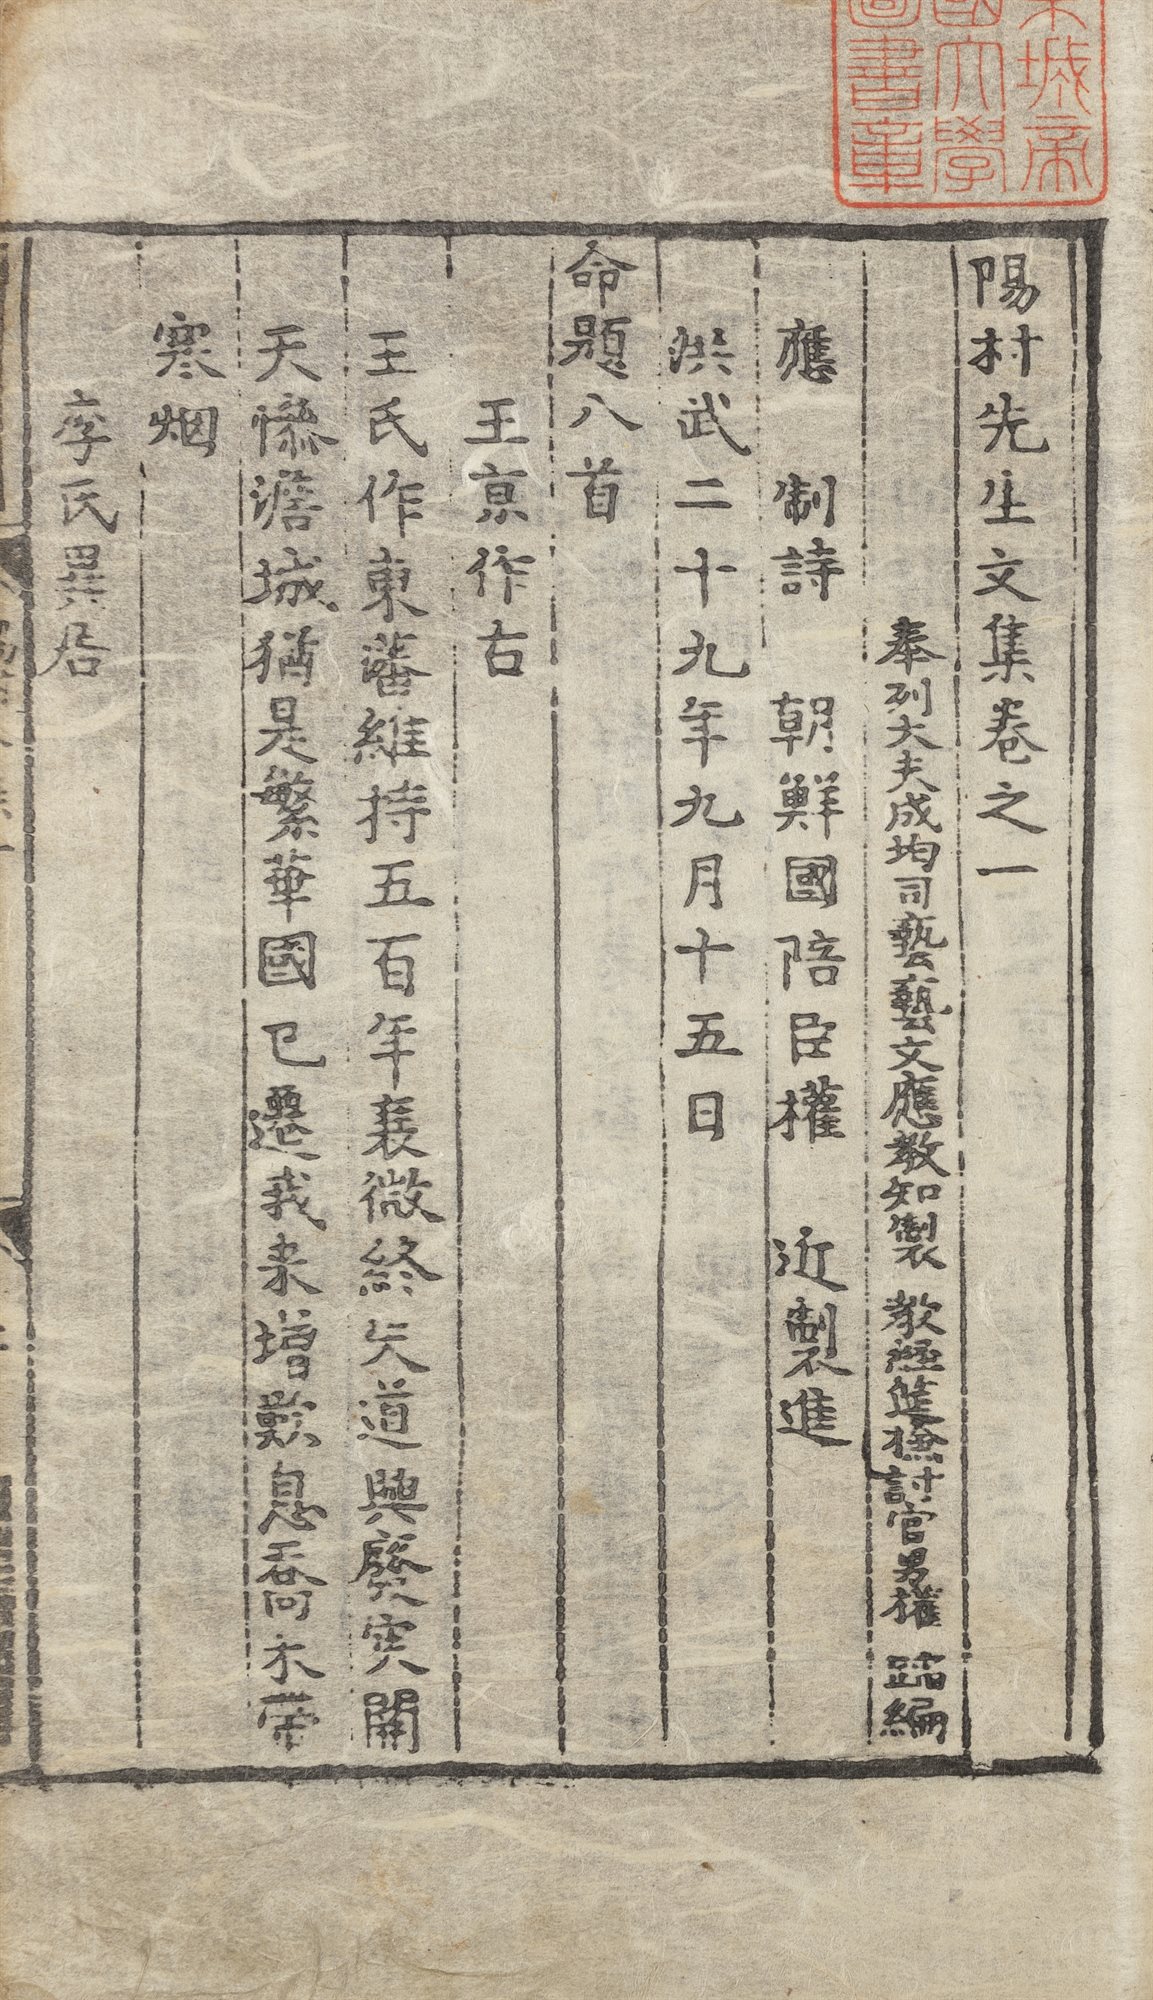 京城帝
國大學
圖書章
陽村先生文集卷之一
奉列大夫成均司藝藝文應教知製 教經筵檢討官男權 蹈編
應 制詩 朝鮮國陪臣權 近製進
洪武二十九年九月十五日
命題八首
王亰作古
王氏作東藩維持五百年衰微終失道興廢实關
天慘澹城猶是繁華國已遷我来增歎息喬木帶
寒烟
李氏異居